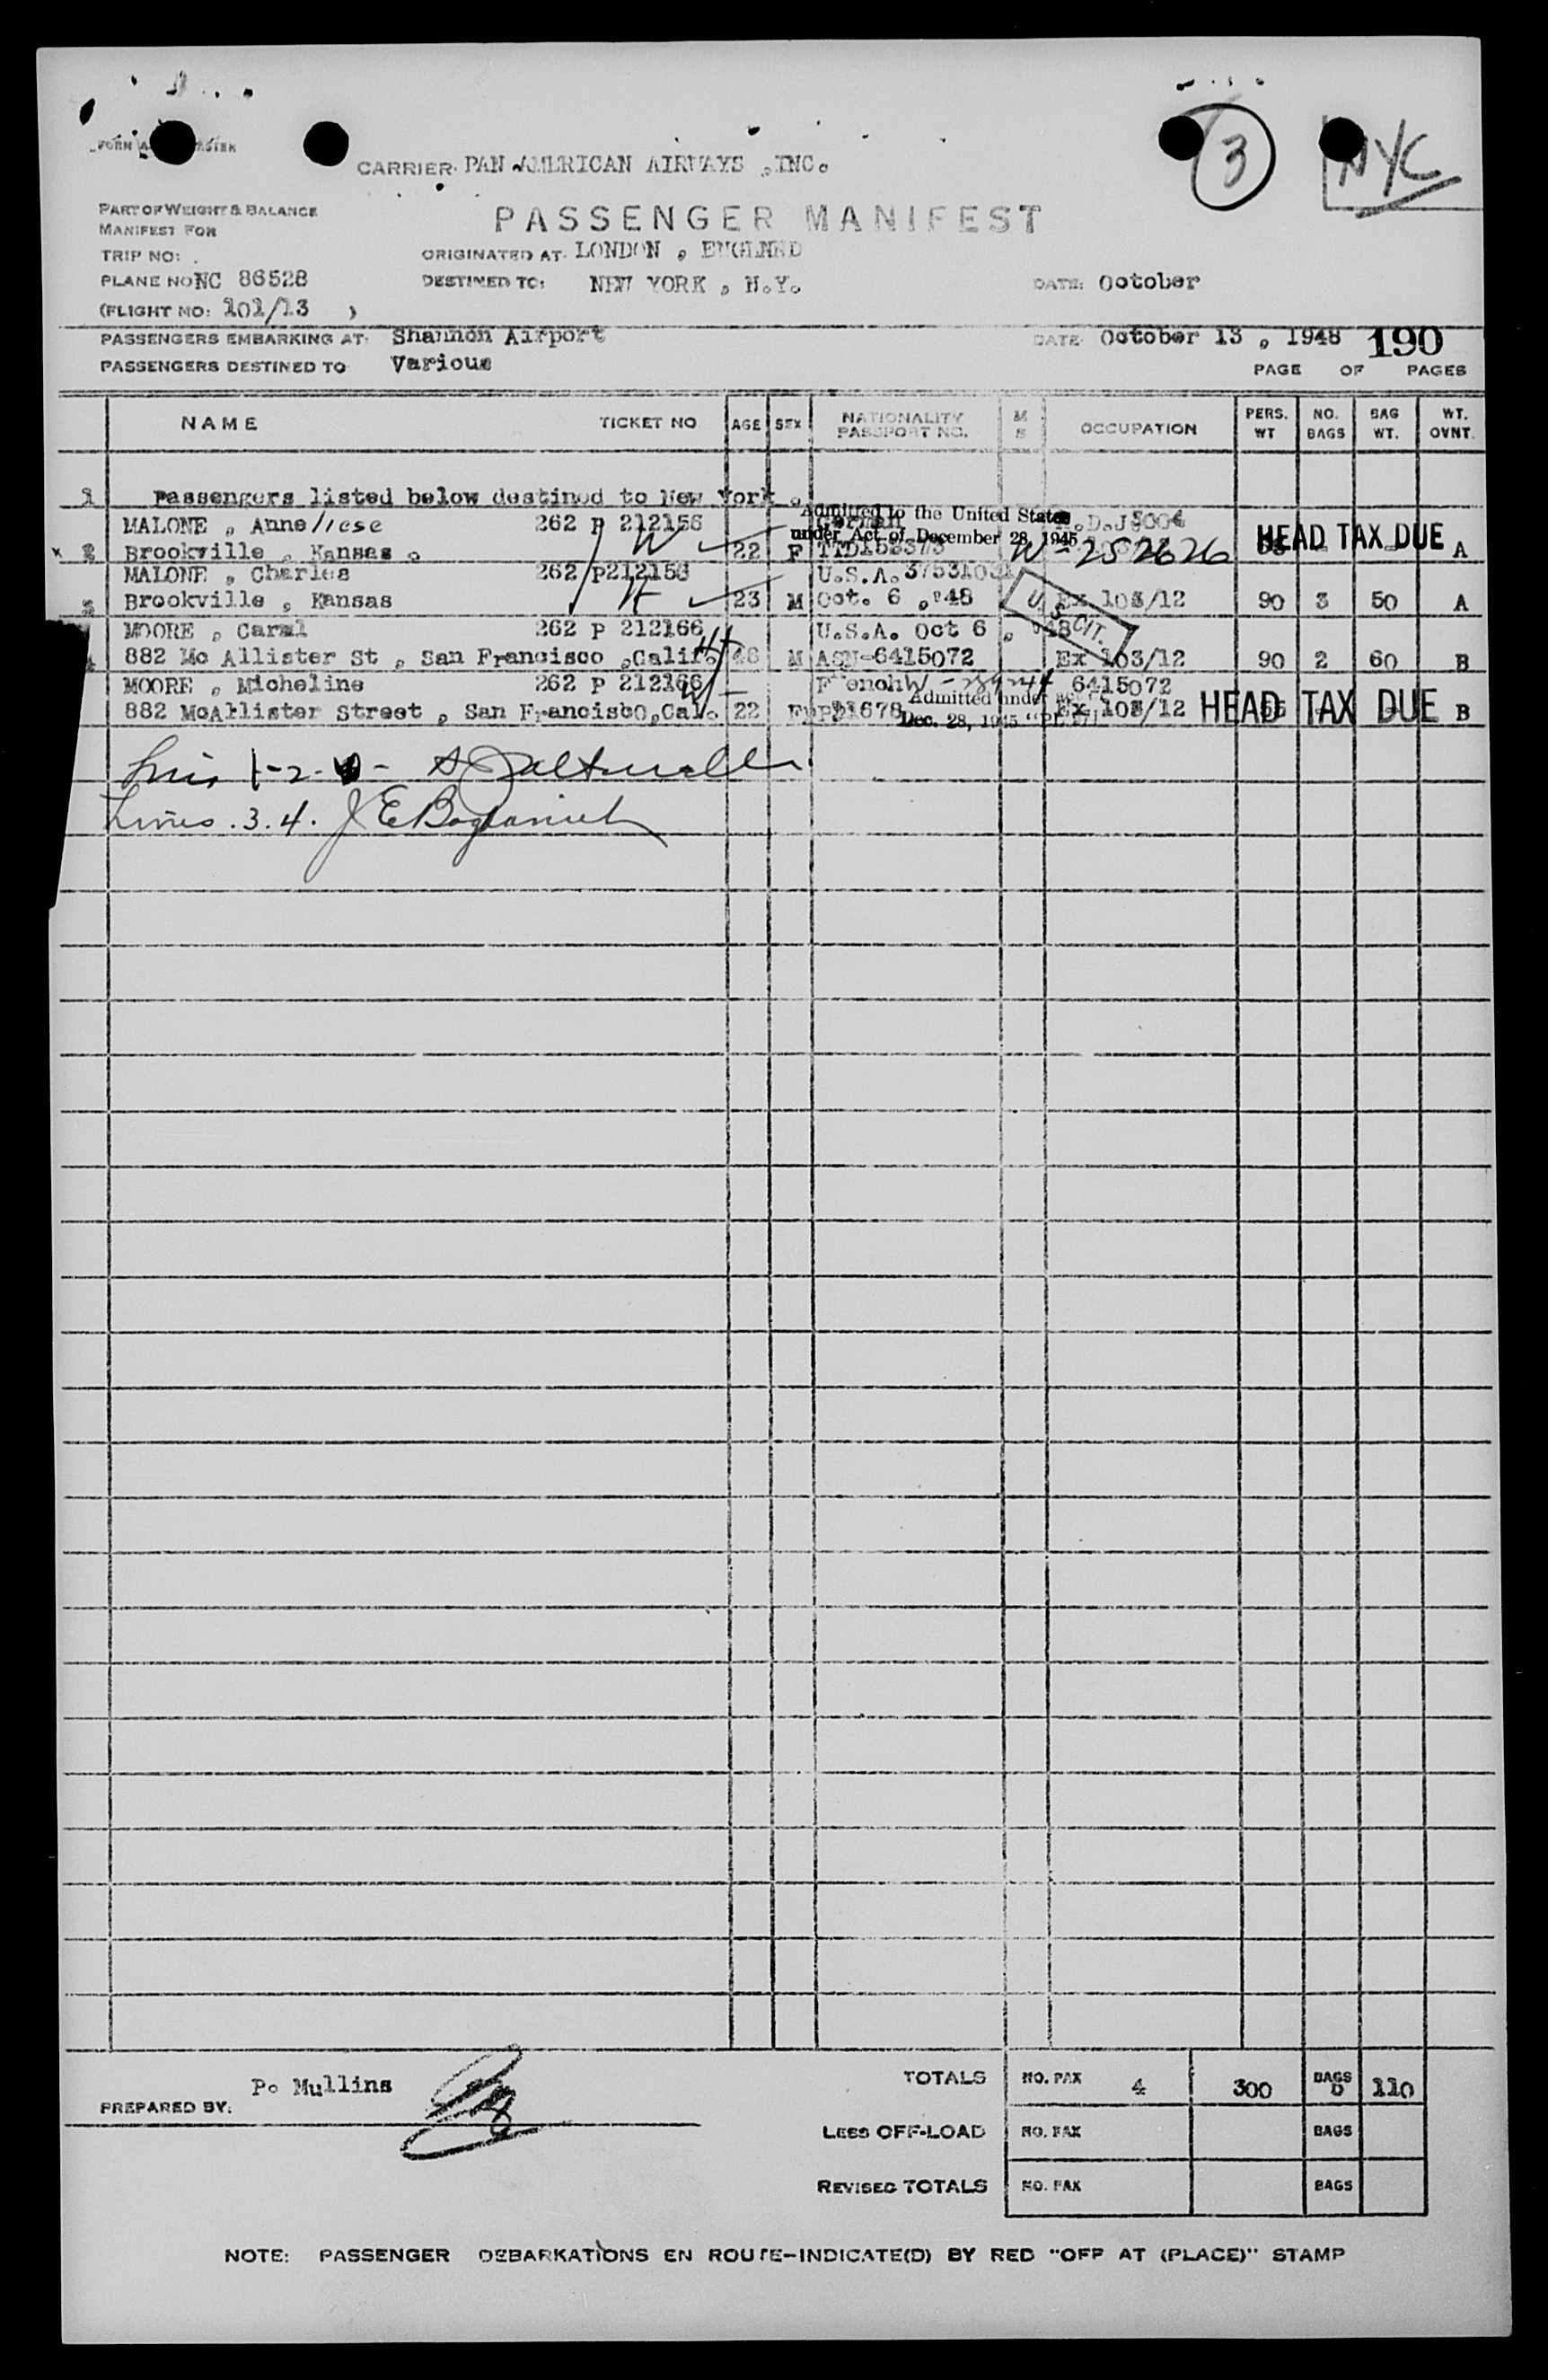 CARRIER PAN AMERICAN AIRWAYS , INC.
3
NYC
PART OF WEIGHT & BALANCE
MANIFEST FOR
PASSENGER MANIFEST
TRIP NO:
ORIGINATED AT. LONDON , ENGLAND
PLANE NO NC 86528
DESTINED TO: NEW YORK , N.Y.
DATE: October
(FLIGHT NO: 101/13 )
PASSENGERS EMBARKING AT: Shannon Airport
DATE October 13 , 1948 190
PASSENGERS DESTINED TO Various
PAGE OF PAGES
NAME TICKET NO AGE SEX NATIONALITY PASSPORT NO. M S OCCUPATION PERS. WT NO. BAGS BAG WT. WT. OVNT.
1 Passengers listed below destined to New York .
Admitted to the United States
under Act of December 28, 1945
MALONE , Anneliese 262 P 212156 German
2 Brookville , Kansas . 22 F W-252626 HEAD TAX DUE A
MALONE , Charles 262 P212156 U.S.A.
3 Brookville , Kansas 23 M Oct. 6 ,'48 U.S. CIT. Ex 103/12 90 3 50 A
MOORE , Carml 262 P 212166 U.S.A. Oct 6 , '48
882 Mc Allister St , San Francisco ,Calif. 46 M ASN-6415072 Ex 103/12 90 2 60 B
MOORE , Micheline 262 P 212166 French 6415072
Admitted under
882 McAllister Street , San Francisco,Cal. 22 F Ex 103/12 HEAD TAX DUE B
Dec. 28, 1945
Lines . 3. 4. J E
P. Mullins
PREPARED BY:
TOTALS NO. PAX 4 300 BAGS 5 110
LESS OFF-LOAD NO. PAX BAGS
REVISED TOTALS NO. PAX BAGS
NOTE: PASSENGER DEBARKATIONS EN ROUTE-INDICATE(D) BY RED "OFF AT (PLACE)" STAMP